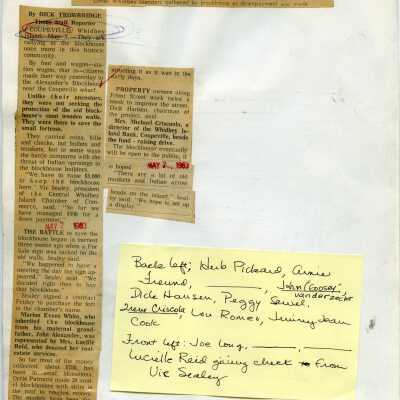 Other Whidbey Islanders gathered by blockhouse as downpayment was made
By DICK TROWBRIDGE
Times Staff Reporter
COUPEVILLE, Whidbey
Island, May 7. — They are
rallying to the blockhouse
once more in this historic
community.
By foot and wagon—sta-
tion wagon, that is—citizens
made their way yesterday to
the Alexander's Blockhouse
near the Coupeville wharf.
Unlike their ancestors,
they were not seeking the
protection of the old block-
house's stout wooden walls.
They were there to save the
small fortress.
They carried coins, bills
and checks, not bullets and
muskets, but in some ways
the battle compares with the
threat of Indian uprisings to
the blockhouse builders.
"We have to raise $3,000
to keep the blockhouse
here," Vic Sealey, president
of the Central Whidbey
Island Chamber of Com-
merce, said. "So far we
have managed $900 for a
down payment."
MAY 7 1963
THE BATTLE to save the
blockhouse began in earnest
three weeks ago when a For
Sale sign was tacked on the
old walls, Sealey said.
"We happened to have a
meeting the day the sign ap-
peared," Sealey said. "We
decided right then to buy
that blockhouse."
Sealey signed a contract
Friday to purchase the fort
in the chamber's name.
Marion Evans White, who
inherited the blockhouse
from his maternal grand-
father, John Alexander, was
represented by Mrs. Lucille
Reid, who donated her real-
estate services.
So far most of the money
collected about $700, has
been in small donations.
Orris Patmore made 20 small
blockhouses with slits in the
roof to receive money.
specting it as it was in the
early days.
PROPERTY owners along
Front Street work twice a
week to improve the street,
Dick Hansen, chairman of
the project, said.
Mrs. Michael Criscuola, a
director of the Whidbey Is-
land Bank, Coupeville, heads
the fund - raising drive.
The blockhouse eventually
will be open to the public, it
is hoped.
MAY 7 1963
"There are a lot of old
muskets and Indian arrow
heads on the island," Sealey
said. "We hope to set up
a display
Back left: Herb Pickard, Arnie
Freund, ________, John (Goosey) vanderzicht
Dick Hansen, Peggy Sewel,
Irene Criscola Lew Romeo, Jimmy Jean
Cook
Front left: Joe Long, ______, ______,
Lucille Reid giving check from
Vic Sealey